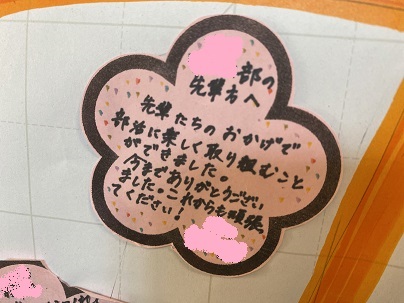 部の
先輩方へ
先輩たちのおかげで
部活に楽しく取り組むこと
ができました。
今までありがとうござい
ました。これからも頑張っ
てください!